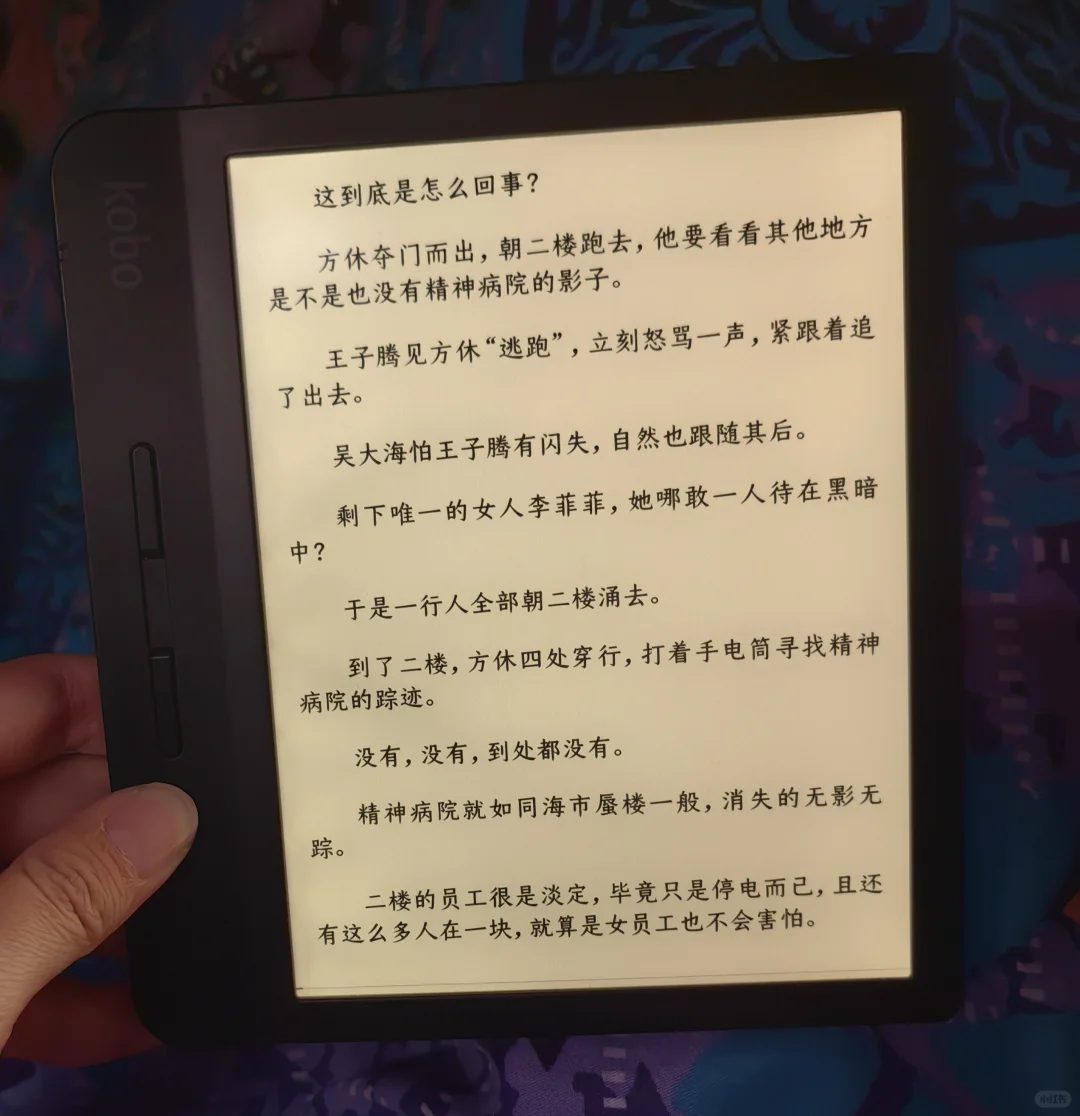 kobo
这到底是怎么回事？
方休夺门而出，朝二楼跑去，他要看看其他地方
是不是也没有精神病院的影子。
王子腾见方休“逃跑”，立刻怒骂一声，紧跟着追
了出去。
吴大海怕王子腾有闪失，自然也跟随其后。
剩下唯一的女人李菲菲，她哪敢一人待在黑暗
中？
于是一行人全部朝二楼涌去。
到了二楼，方休四处穿行，打着手电筒寻找精神
病院的踪迹。
没有，没有，到处都没有。
精神病院就如同海市蜃楼一般，消失的无影无
踪。
二楼的员工很是淡定，毕竟只是停电而已，且还
有这么多人在一块，就算是女员工也不会害怕。
小红书